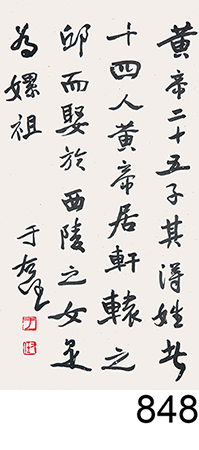 黃帝二十五子其得姓者
十四人黃帝居軒轅之
邱而娶於西陵之女是
為嫘祖
于右任
848